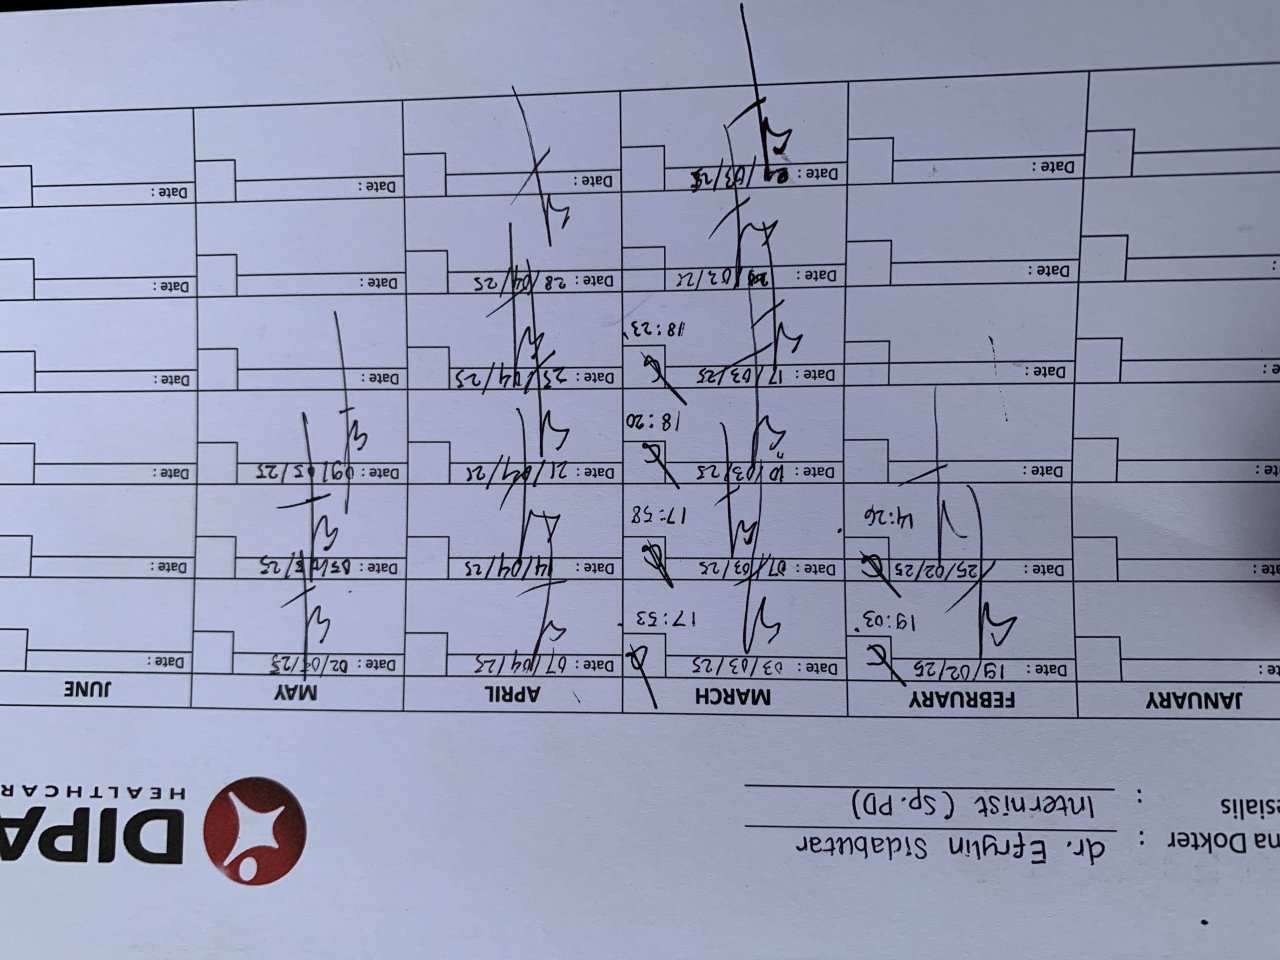 ma Dokter : dr. Efrylin Sidabutar
esialis : Internist (Sp.PD)
DIPA
HEALTHCAR
JANUARY FEBRUARY MARCH APRIL MAY JUNE
e : Date : 19/02/25 Date : 03/03/25 Date : 07/04/25 Date : Date :
19:03 17:53
te : Date : 25/02/25 Date : 07/03/25 Date : 14/04/25 Date : Date :
14:26 17:58
te : Date : Date : 10/03/25 Date : 21/04/25 Date : Date :
18:20
e : Date : Date : 17/03/25 Date : Date : Date :
18:23
: Date : Date : Date : 28/04/25 Date : Date :
Date : Date : Date : Date : Date :